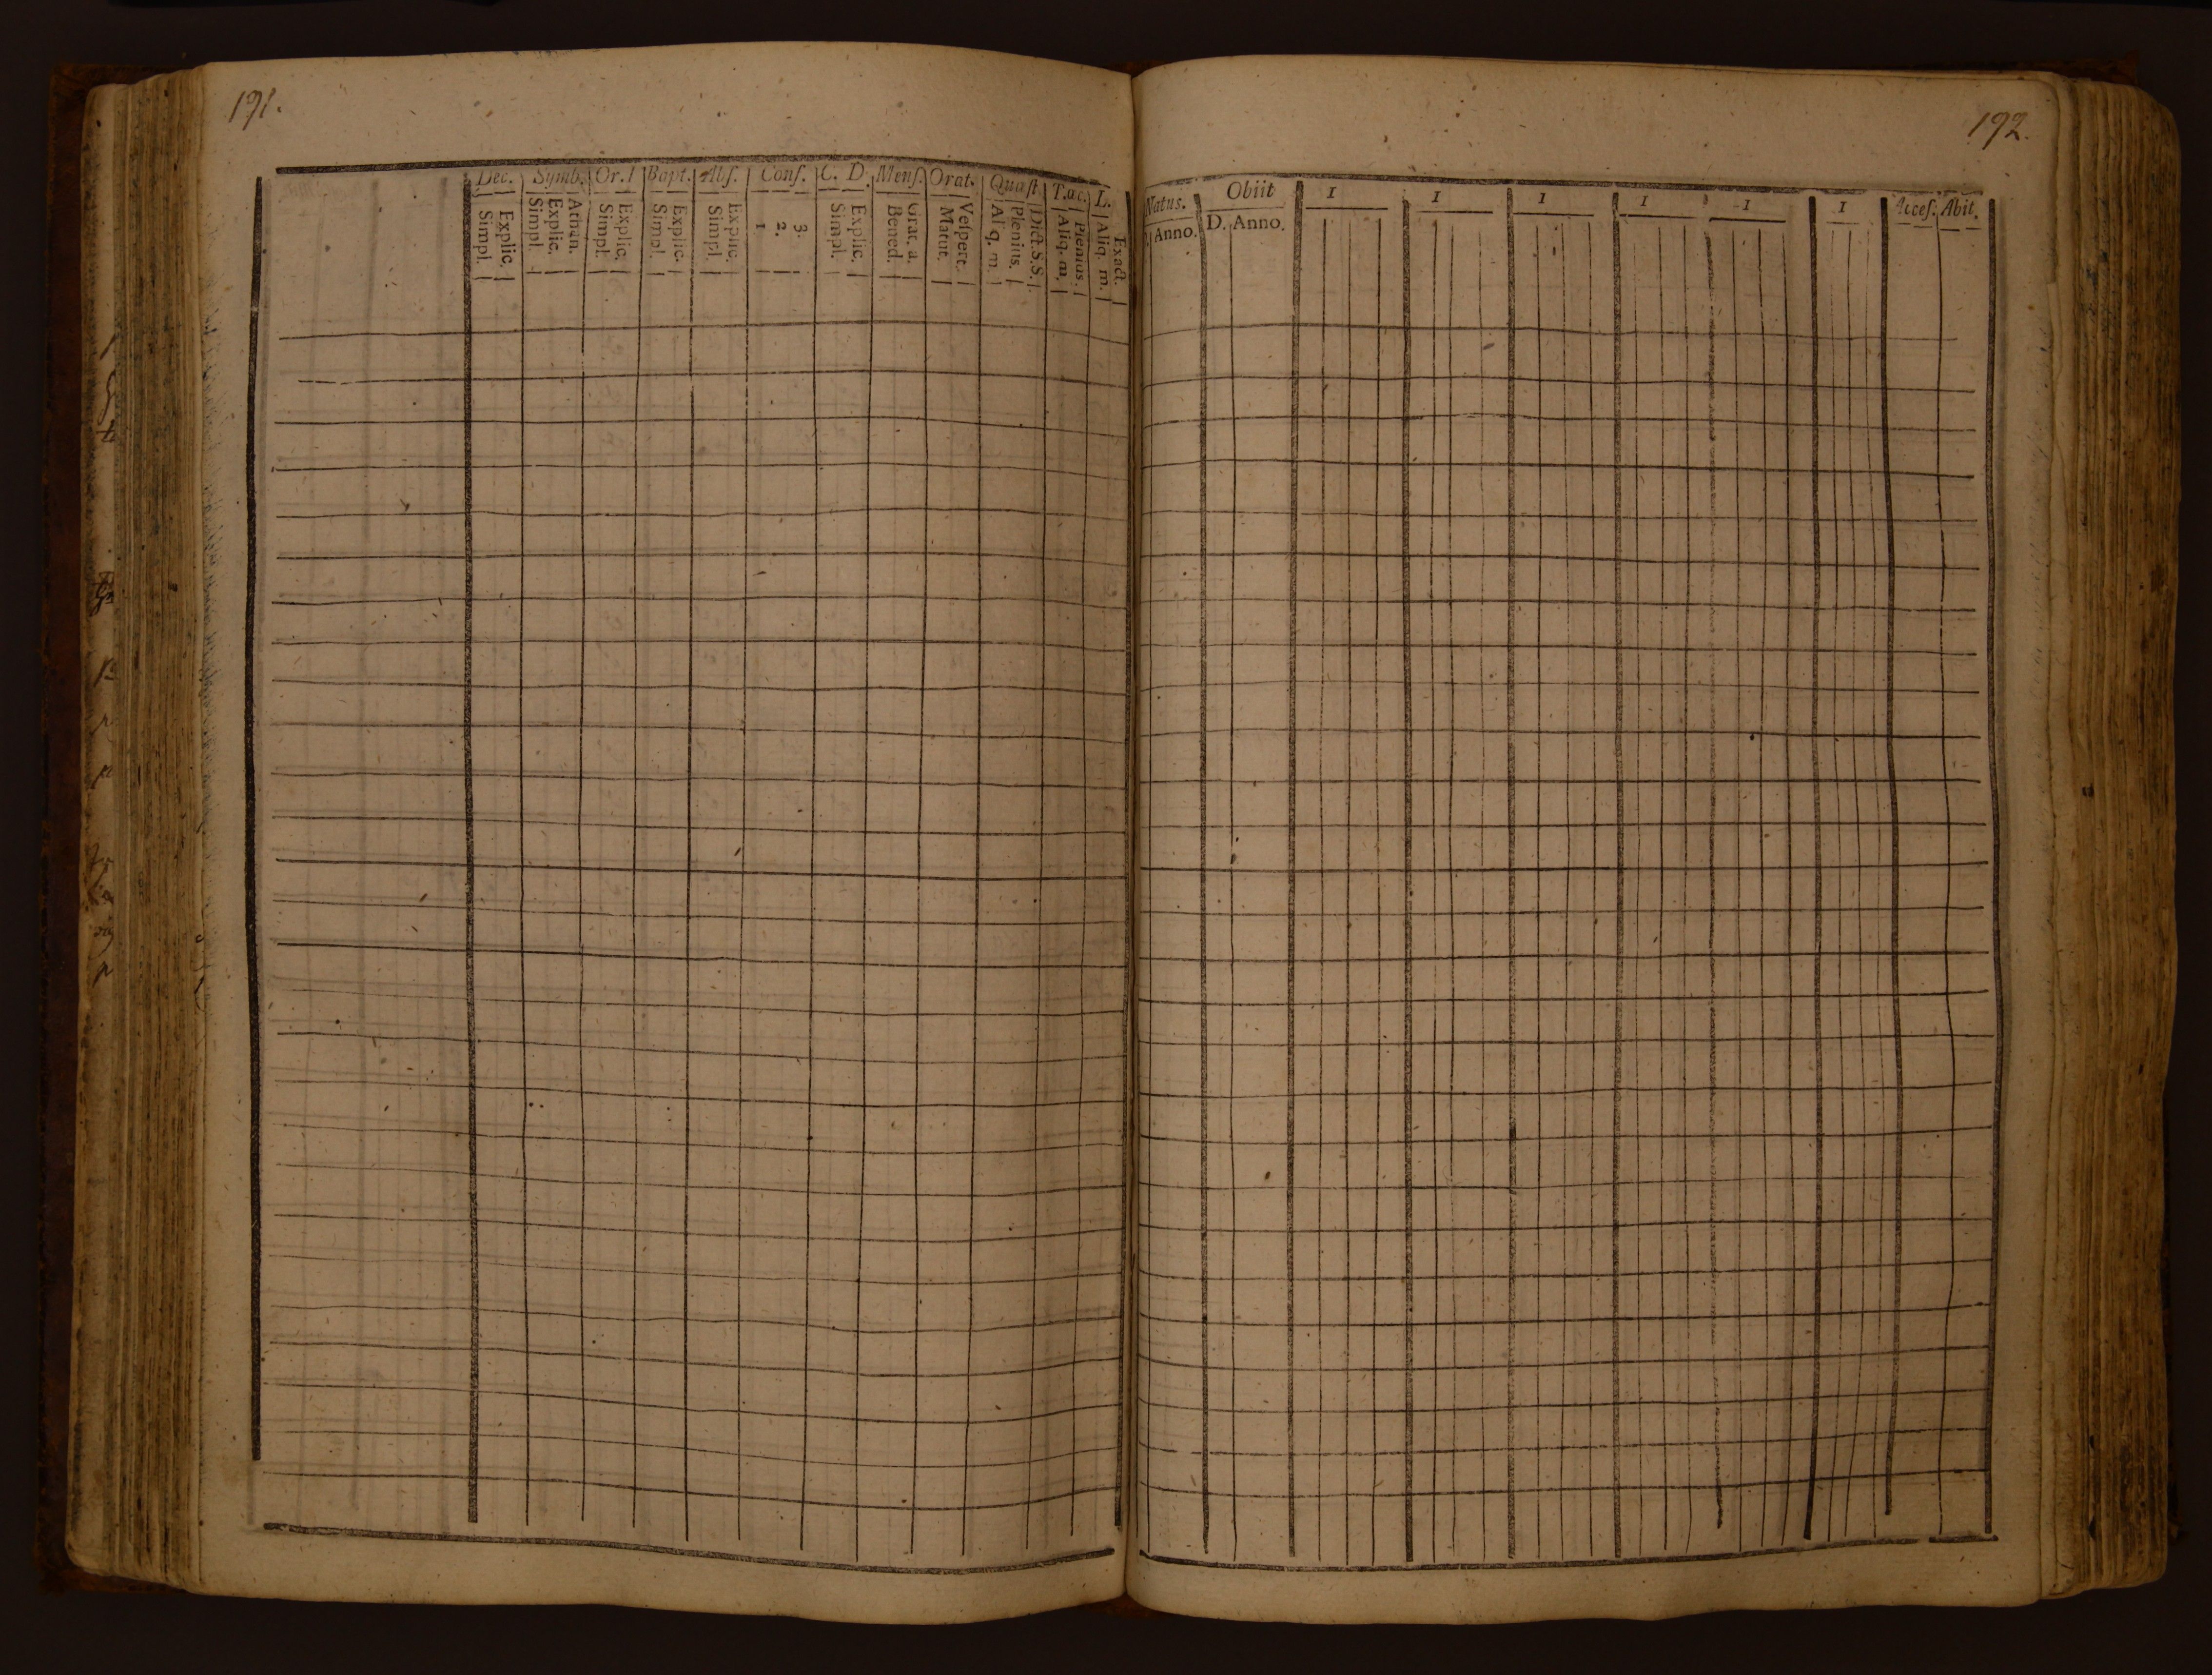 191.
192.
Dec. Symb. Or. Bapt. Abs. Conf. C. D. Mens. Orat. Quæst T.œc. L.
Explic. Simpl.
Athan. Explic. Simpl.
Explic. Simpl.
Explic. Simpl.
Explic. Simpl.
3. 2. 1
Explic. Simpl.
Grat. a. Bened.
Vespert. Matut.
Dict.S.S. Plenius. Aliq. m.
Plenius. Aliq. m.
Exact. Aliq. m.
Natus. Obiit 1 1 1 1 1 1 Acces. Abit.
Anno. D. Anno.